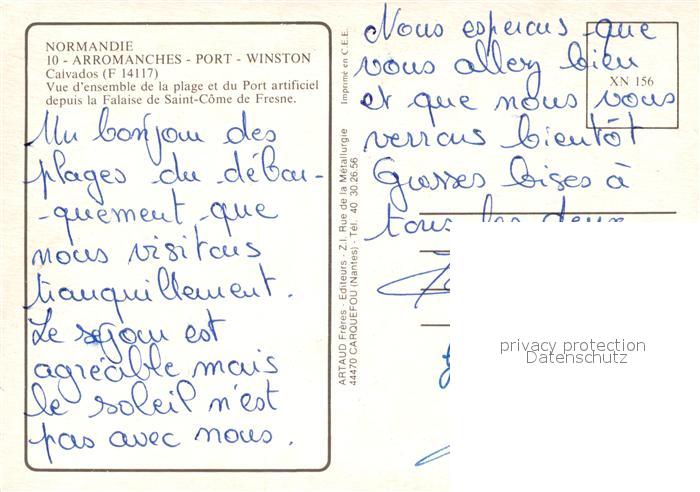 NORMANDIE
10 - ARROMANCHES - PORT - WINSTON
Calvados (F 14117)
Vue d'ensemble de la plage et du Port artificiel
depuis la Falaise de Saint-Côme de Fresne.
Un bonjour des
plages du débar-
-quement que
nous visitons
tranquillement.
Le séjour est
agréable mais
le soleil n'est
pas avec nous.
Imprimé en C.E.E.
ARTAUD Frères - Editeurs - Z.I. Rue de la Métallurgie
44470 CARQUEFOU (Nantes) - Tél. 40 30.26.56
XN 156
Nous espérons que
vous allez bien
et que nous vous
verrons bientôt
Grosses bises à
tous les deux
privacy protection
Datenschutz